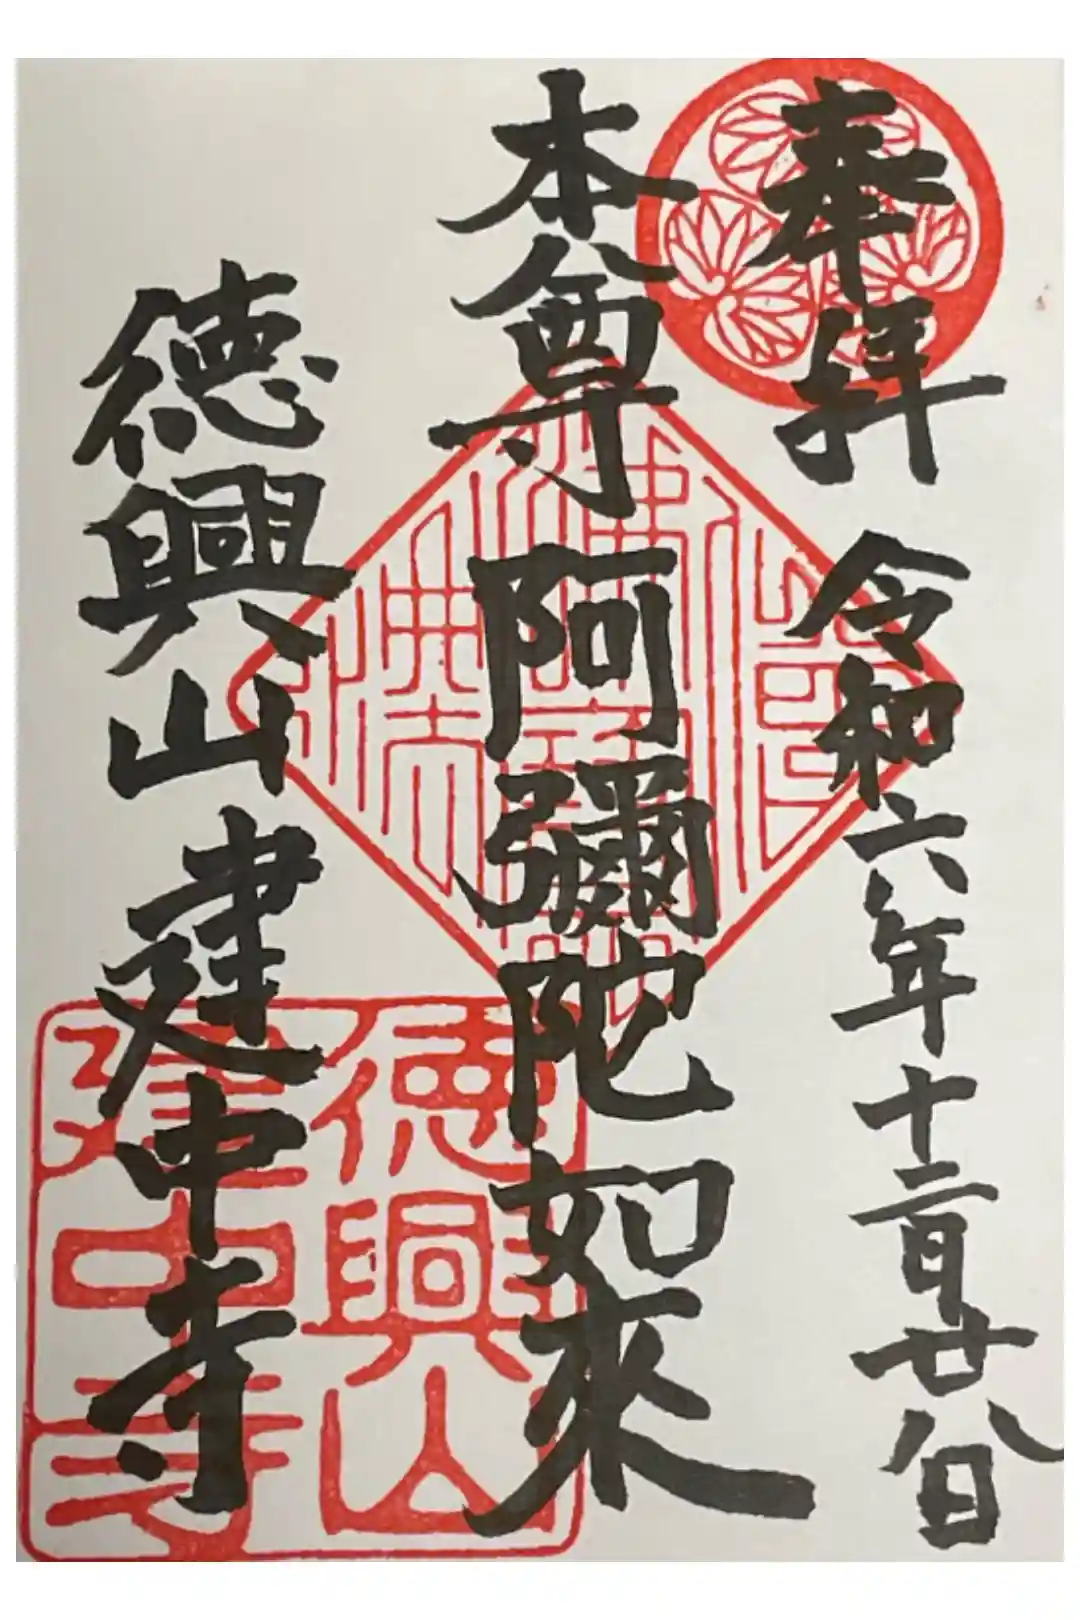 奉拝 令和六年十二月廿八日
本尊 阿彌陀如來
徳興山 建中寺
徳興山
建中寺